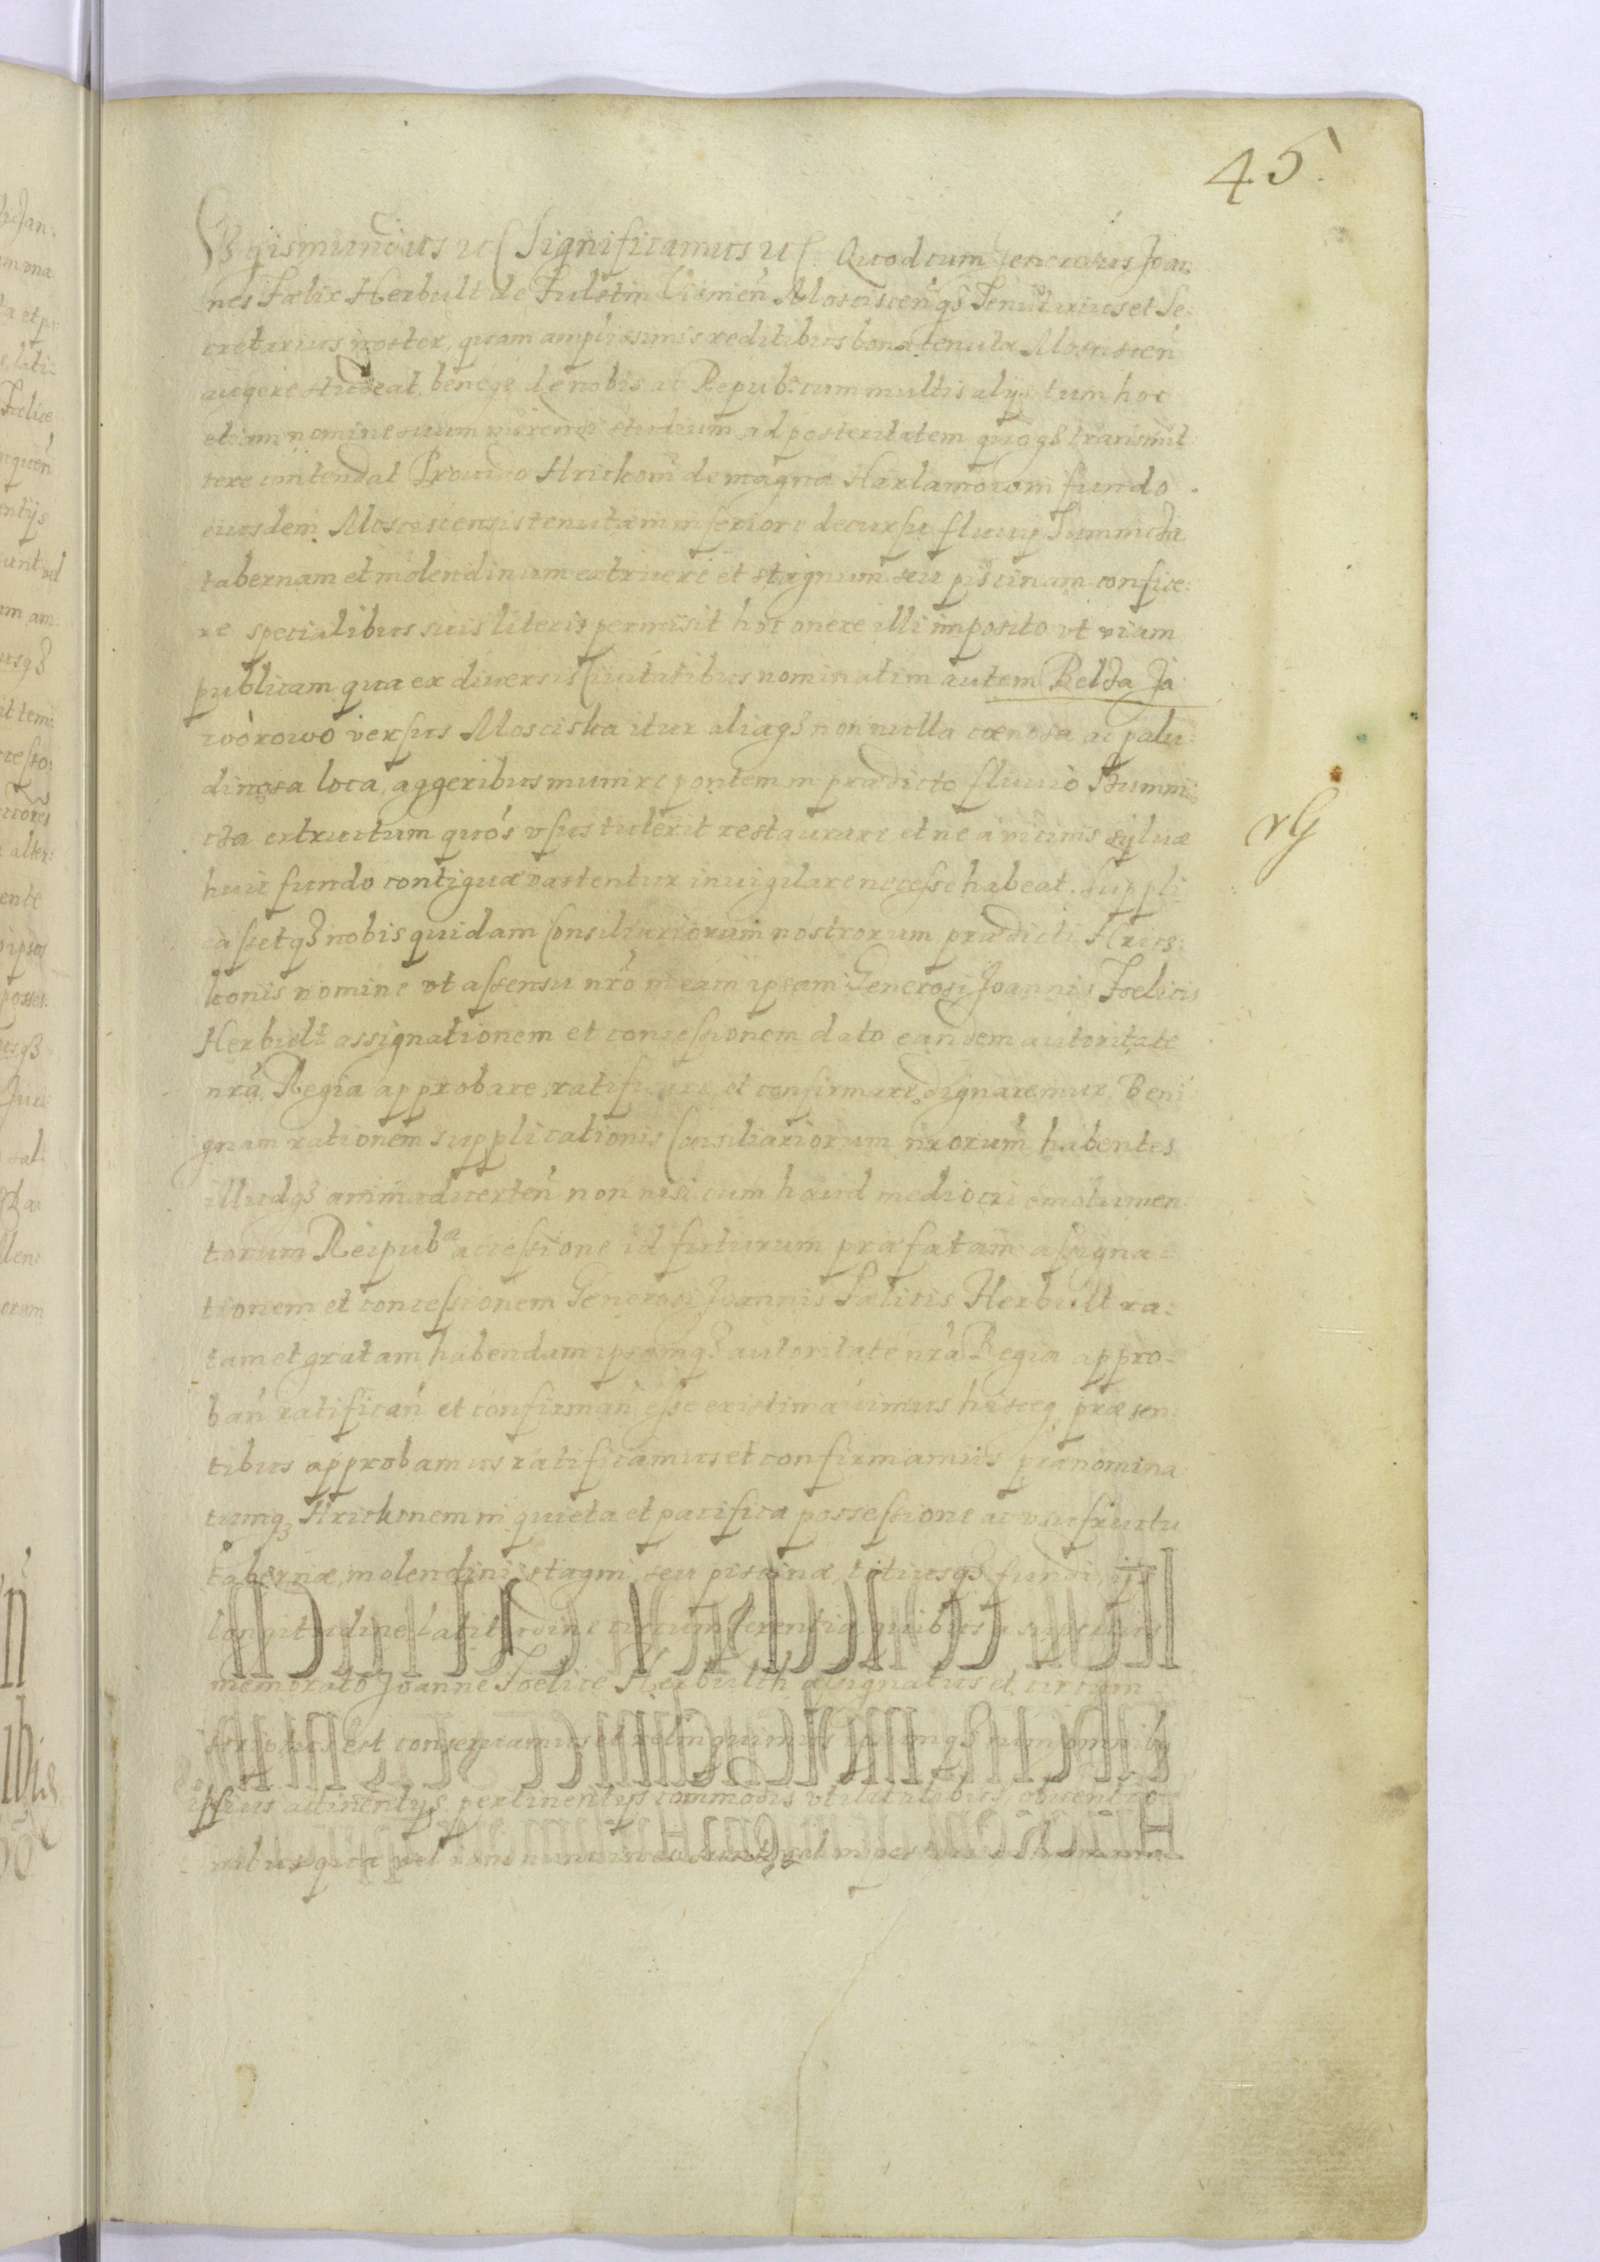 45.
Sigismundus etc Significamus etc. Quod cum Generosus Joan
nes Fœlix Herbult de Fulstin Visnień Moscisceń q3 Tenutarius et Se:
cretarius noster, quam amplissimis reditibus bona tenutæ Moscisceń
augere studeat, bene q3 de nobis ac Repub: cum multis alijs tum hoc
etiam nomine suum merendi studium ad posteritatem quoq3 transmit:
tere contendat Prouido Hrickoni de magna Harlamowom fundo
eiusdem Mosciscensis tenutæ in inferiore decursu fluuij
tabernam et molendinum extruere et stagnum seu piscinam confice:
re specialibus suis literis permisit hoc onere illi imposito vt viam
publicam qua ex diuersis Ciuitatibus nominatim autem Belza Ja
woròwo versus Mosciska itur aliaq3 nonnulla cœnosa ac palu:
dinosa loca, aggeribus munire pontem in prædicto fluuio
extructum quòs vsus tulerit restaurare et ne à vicinis syluæ
huic fundo contiguæ vastentur inuigilare necesse habeat. Suppli:
cassetq3 nobis quidam Consiliariorum nostrorum prædicti Hric:
konis nomine vt assensu nrõ in eam ipsam Generosi Joannis Fœlicis
Herbult assignationem et concessionem dato eandem autoritate
nrã Regia approbare, ratificare, et confirmare dignaremur. Beni:
gnam rationem supplicationis Consiliariorum nrorum habentes
illudq3 animaduerteń non nisi cum haud mediocri emolumen:
torum Reipubæ accessione id futurum præfatam assigna:
tionem et concessionem Generosi Joannis Fœlicis Herbult ra:
tam et gratam habendam ipsamq3 autoritate nrã Regia appro:
bań ratificań et confirmań esse existimauimus hisceq3 præsen:
tibus approbamus ratificamus et confirmamus prænomina
tumq3 Hrickonem in quieta et pacifica possessione ac vsufructu
tabernæ, molendini, stagni, seu piscinæ, totiusq3 fundi,
longitudine latitudine circumferentia quibus a superius
memorato Joanne Fœlice Herbulth assignatus et circum:
scriptus est conseruamus et relinquimus ipsumq3 cum omnibus
ipsius attinentijs pertinentijs commodis vtilitatibus, obuentio:
nibus quæ vel iam nunc in eo sunt, vel in posterum